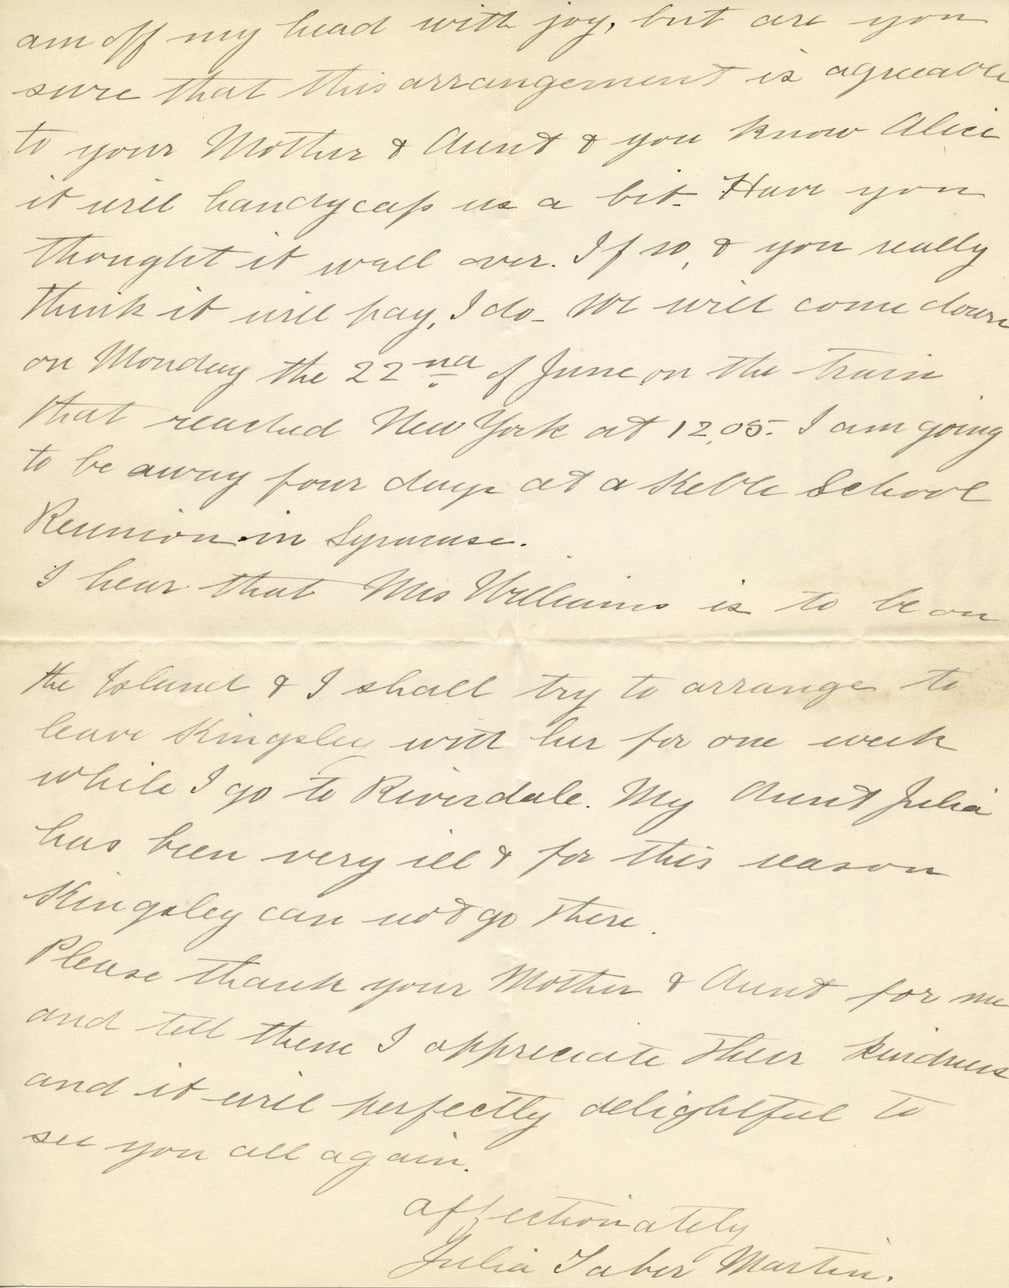 am off my head with joy, but are you
sure that this arrangement is agreeable
to your Mother & Aunt & you know Alice
it will handycap us a bit. Have you
thought it wall over. If so, & you really
think it will pay, I do - We will come down
on Monday the 22nd of June on the train
that reached New York at 12,05. I am going
to be away four days at a Keble School
Reunion in Syracuse.
I hear that Mrs Williams is to be on
the Island & I shall try to arrange to
leave Kingsley with her for one week
while I go to Riverdale. My Aunt Julia
has been very ill & for this reason
Kingsley can not go there.
Please thank your Mother & Aunt for me
and tell them I appreciate their kindness
and it will perfectly delightful to
see you all again.
affectionately
Julia Taber Martin.